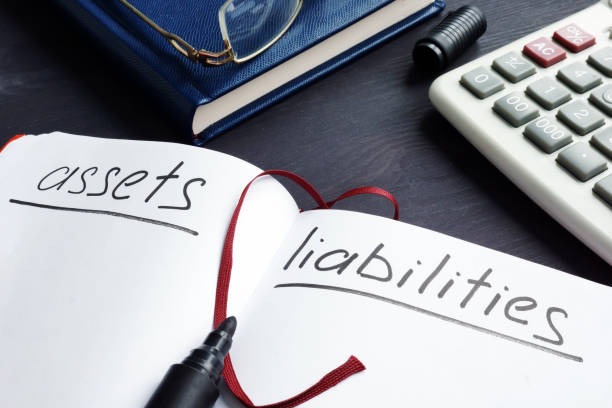 assets
liabilities
ON/C
AC
%
4
0
1
2
00
000